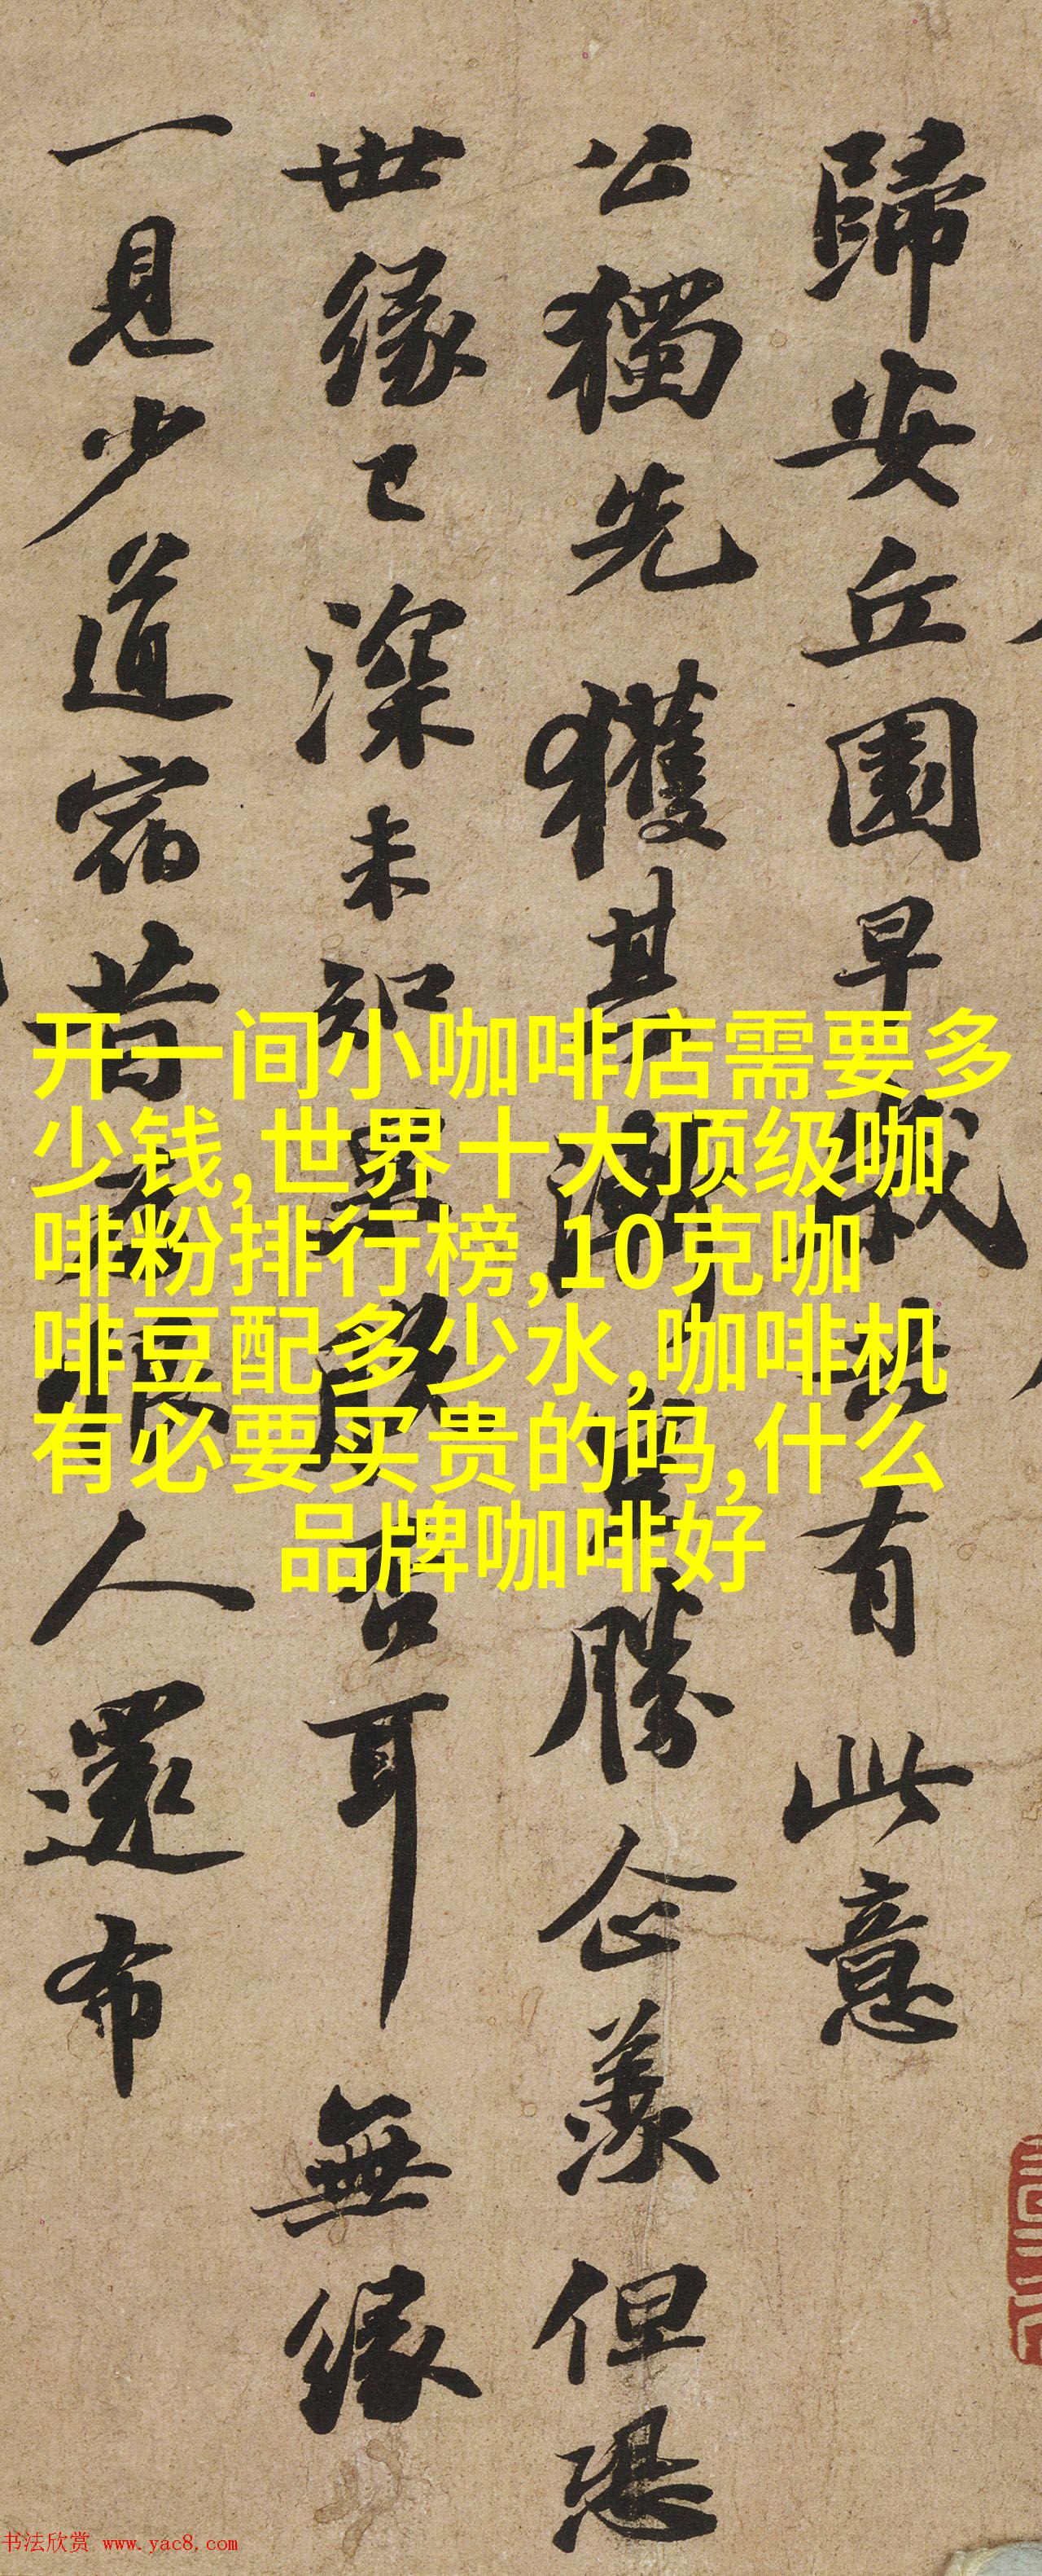 歸安丘園早歲有此意
公獨先獲其勝企羨但恐
世緣已深未知果耳無緣
一見少道宿昔人還布
开一间小咖啡店需要多
少钱,世界十大顶级咖
啡粉排行榜,10克咖
啡豆配多少水,咖啡机
有必要买贵的吗,什么
品牌咖啡好
书法欣赏 www.yac8.com